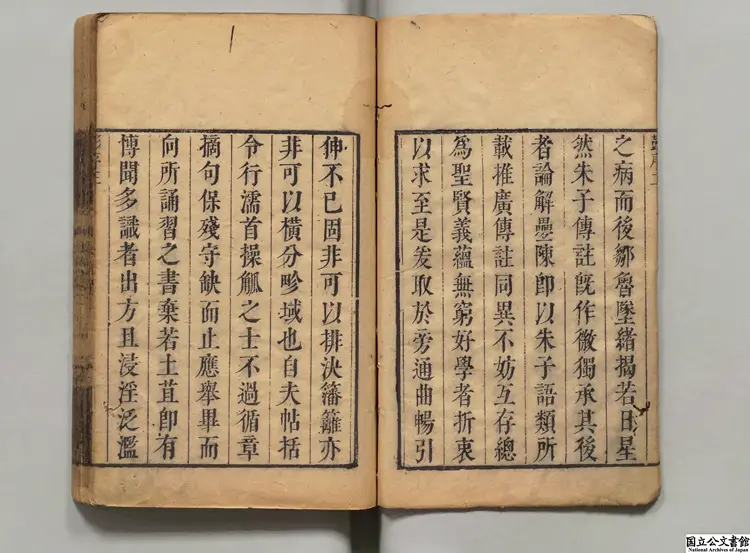 之病而後鄒魯墜緒揭若日星
然朱子傳註旣作微獨承其後
者論解壘陳卽以朱子語類所
載推廣傳註同異不妨互存總
爲聖賢義蘊無窮好學者折衷
以求至是爰取於旁通曲暢引
伸不已固非可以排決籓籬亦
非可以橫分畛域也自夫帖括
令行濡首操觚之士不過循章
摘句保殘守缺而止應舉畢而
向所誦習之書棄若土苴卽有
博聞多識者出方且浸淫泛濫
国立公文書館
National Archives of Japan